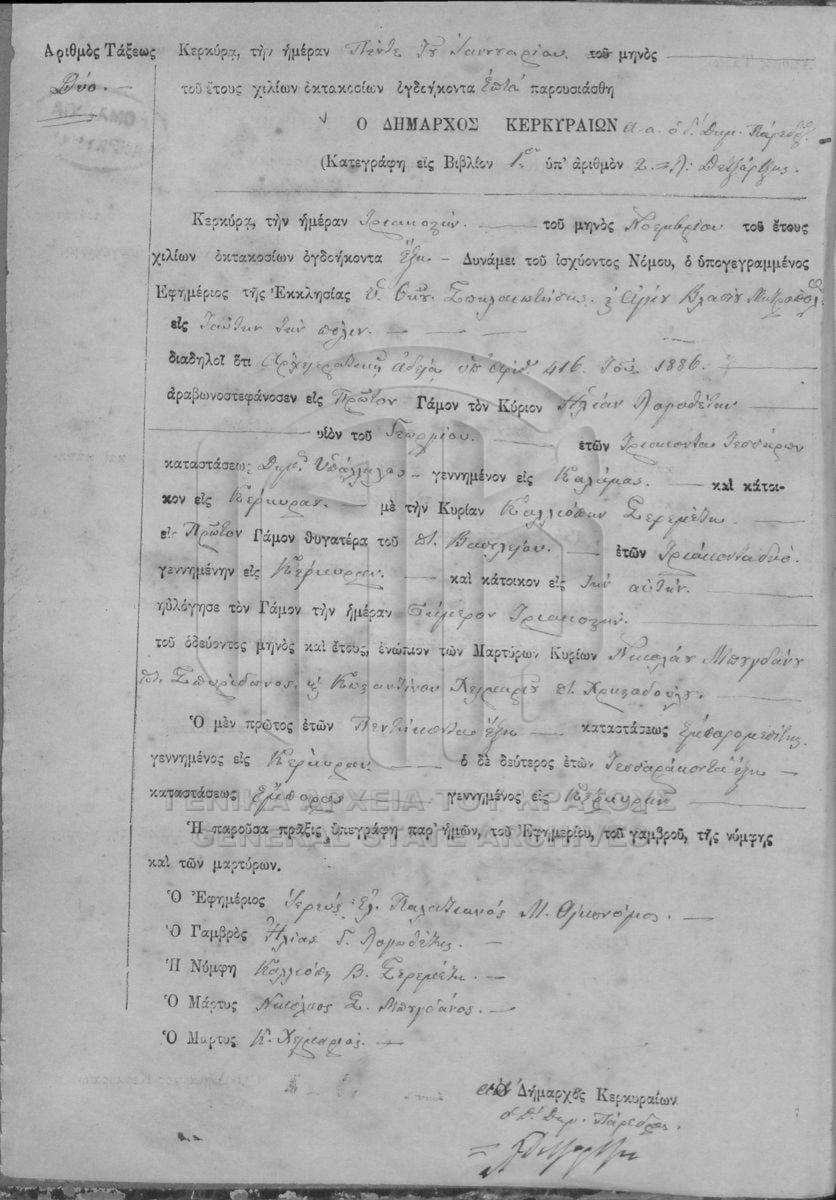 Ἀριθμὸς Τάξεως
Δύο.
Κερκύρᾳ, τὴν ἡμέραν Πέντε Ἰαννουαρίου τοῦ μηνὸς
τοῦ ἔτους χιλίων ὀκτακοσίων ὀγδοήκοντα ἑπτὰ παρουσιάσθη
Ὁ ΔΗΜΑΡΧΟΣ ΚΕΡΚΥΡΑΙΩΝ
(Κατεγράφη εἰς Βιβλίον 1ον ὑπ' ἀριθμὸν 2.
Κερκύρᾳ, τὴν ἡμέραν Τριακοστήν. τοῦ μηνὸς Νοεμβρίου τοῦ ἔτους
χιλίων ὀκτακοσίων ὀγδοήκοντα ἕξη – Δυνάμει τοῦ ἰσχύοντος Νόμου, ὁ ὑπογεγραμμένος
Ἐφημέριος τῆς Ἐκκλησίας Σπηλαιωτίσσης Ἁγίου Βλασίου Μητροπόλ
εἰς Ταύτην τὴν πόλιν.
διαδηλοῖ ὅτι Ἀρχιερατικῇ ἀδείᾳ ὑπ' ἀριθ 416 1886.
ἀραβωνοστεφάνοσεν εἰς Πρῶτον Γάμον τὸν Κύριον Ἠλίαν Λομοθέτην
υἱὸν τοῦ Γεωργίου. ἐτῶν Τριάκοντα Τεσσάρων
καταστάσεως Δημ. Ὑπάλληλος – γεννημένον εἰς Καλάμας. – καὶ κάτοι-
κον εἰς Κέρκυραν. – μὲ τὴν Κυρίαν Καλλιόπην Σερεμέτη
εἰς Πρῶτον Γάμον θυγατέρα τοῦ Βασιλείου. ἐτῶν Τριάκονταδύο.
γεννημένην εἰς Κέρκυραν. – καὶ κάτοικον εἰς τὴν αὐτήν.
ηὐλόγησε τὸν Γάμον τὴν ἡμέραν Σήμερον Τριακοστήν.
τοῦ ὁδεύοντος μηνὸς καὶ ἔτους, ἐνώπιον τῶν Μαρτύρων Κυρίων Νικολάου Μπογδάνου
Σπυρίδωνος. Κωσταντίνου
Ὁ μὲν πρῶτος ἐτῶν Πεντήκοντα ἕξη – καταστάσεως Ἐμπορομεσίτης.
γεννημένος εἰς Κέρκυραν ὁ δὲ δεύτερος ἐτῶν Τεσσαράκοντα ἕξη –
καταστάσεως Ἔμπορος γεννημένος εἰς Κέρκυραν
ΓΕΝΙΚΑ ΑΡΧΕΙΑ ΤΟΥ ΚΡΑΤΟΥΣ
GENERAL STATE ARCHIVES
Ἡ παροῦσα πρᾶξις ὑπεγράφη παρ' ἡμῶν, τοῦ Ἐφημερίου, τοῦ γαμβροῦ, τῆς νύμφης
καὶ τῶν μαρτύρων.
Ὁ Ἐφημέριος Ἱερεὺς Παλατιανὸς Μ. Οἰκονόμος.
Ὁ Γαμβρὸς Ἠλίας Γ. Λομοθέτης.
Ἡ Νύμφη Καλλιόπη Β. Σερεμέτη.
Ὁ Μάρτυς Νικόλαος Σ. Μπογδάνος.
Ὁ Μάρτυς Κ.
Ὁ Δήμαρχος Κερκυραίων
ὁ Δημ. Πάρεδρος.